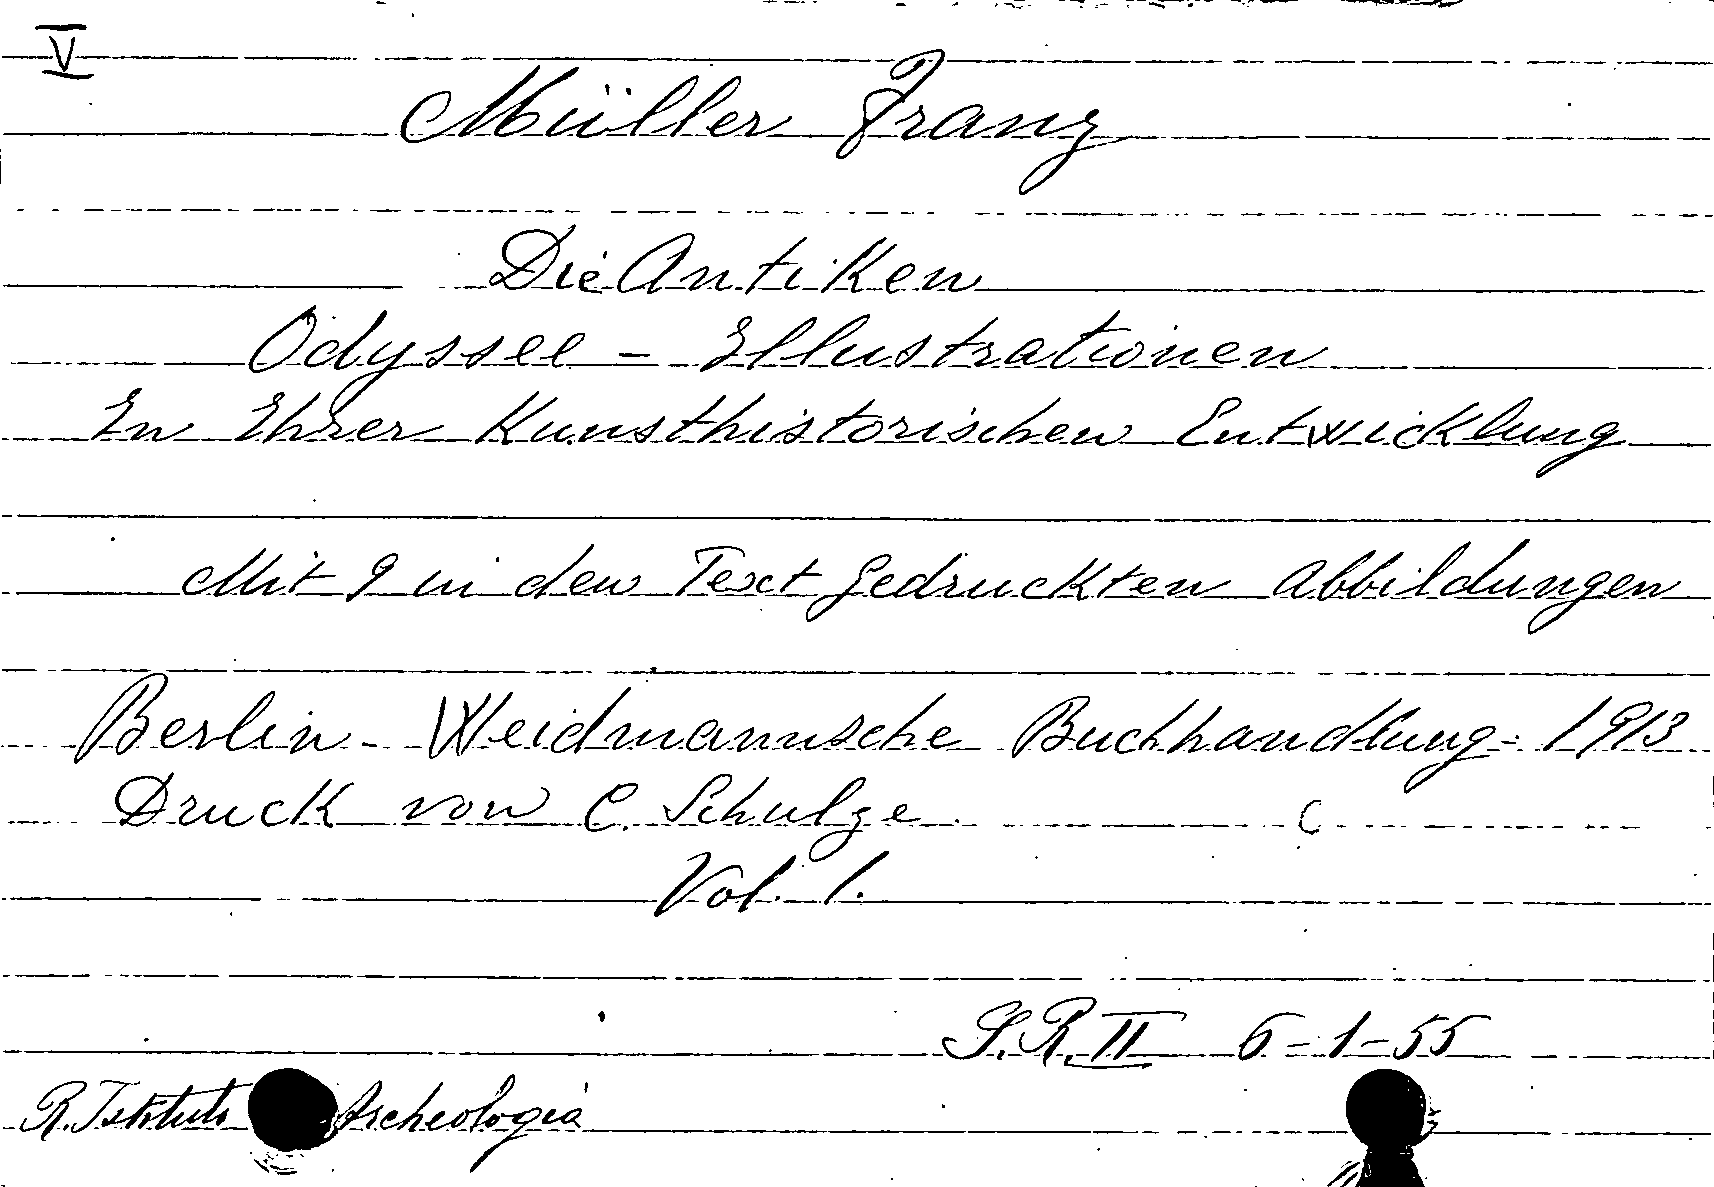 V
Müller Franz
Die Antiken
Odyssee - Illustrationen
In Ihrer Kunsthistorischen Entwicklung
Mit 9 in den Text gedruckten Abbildungen
Berlin - Weidmannsche Buchhandlung - 1913
Druck von C. Schulze
Vol. 1.
S.R. II 6-1-55
R. Istituto Archeologia